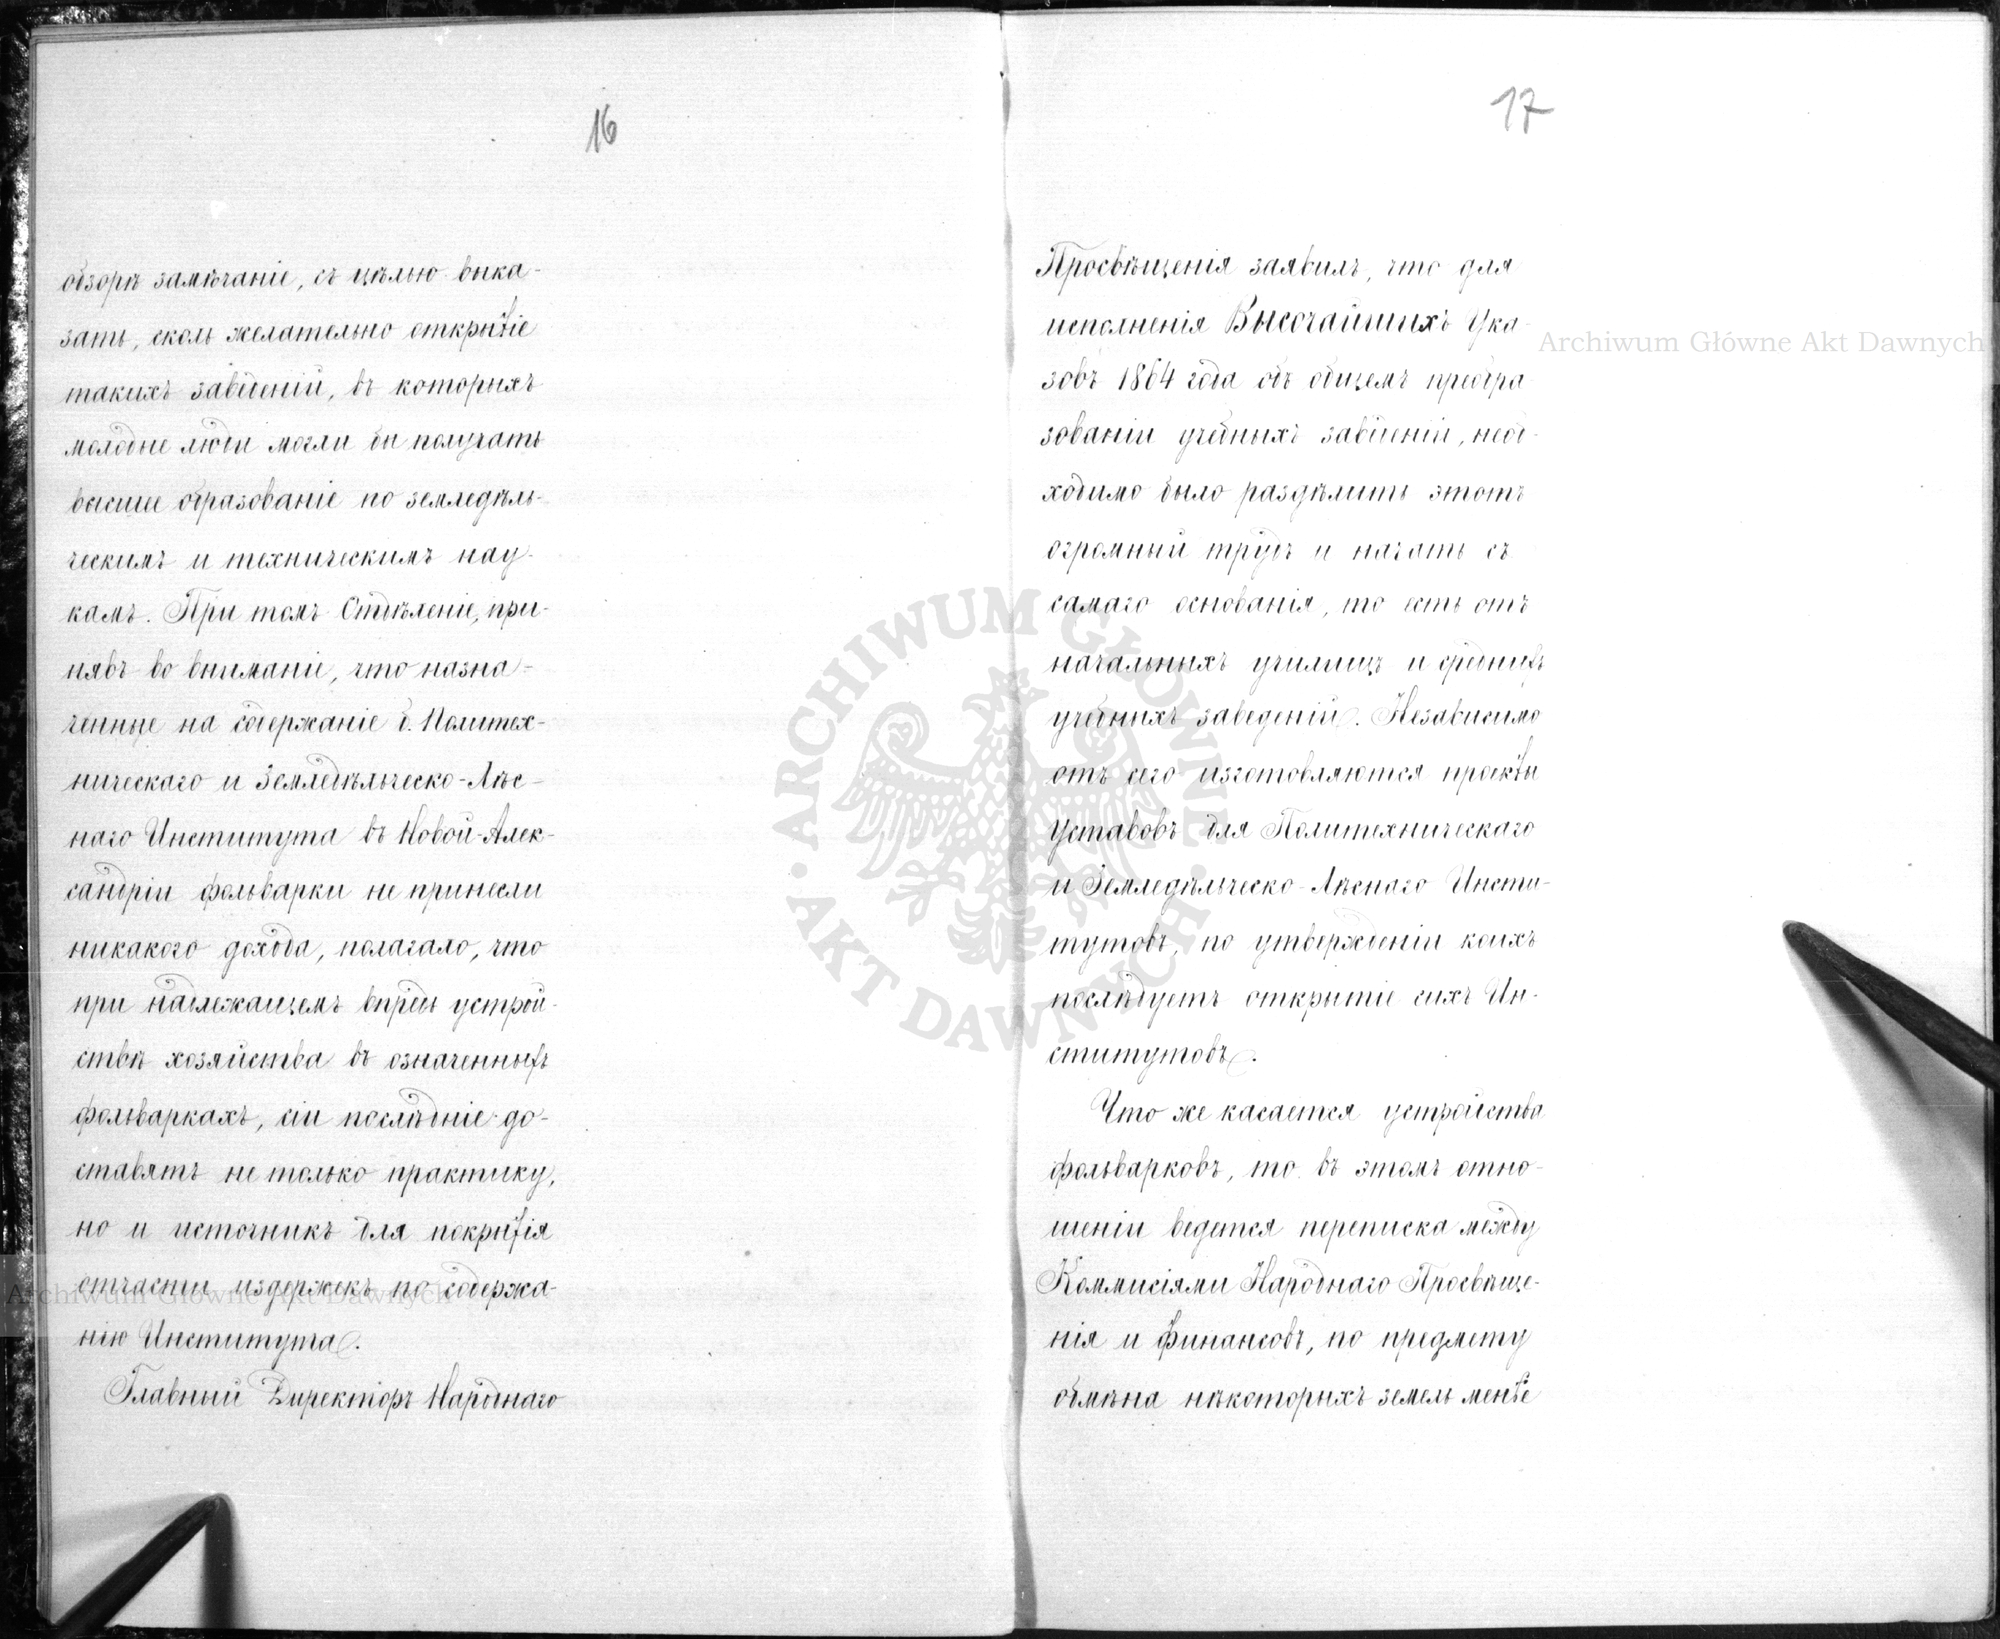 16
обзорѣ замѣчаніе, съ цѣлью выка-
зать, сколь желательно открытіе
такихъ заведеній, въ которыхъ
молодые люди могли бы получать
высшее образованіе по земледѣль-
ческимъ и техническимъ нау-
камъ. При томъ Отдѣленіе, при-
нявъ во вниманіе, что назна-
ченные на содержаніе б. Политех-
ническаго и Земледѣльческо-Лѣс-
наго Института въ Новой-Алек-
сандріи фольварки не принесли
никакого дохода, полагало, что
при надлежащемъ впредь устрой-
ствѣ хозяйства въ означенныхъ
фольваркахъ, сіи послѣдніе до-
ставятъ не только практику,
но и источникъ для покрытія
отчасти издержекъ по содержа-
нію Института.
Главный Директоръ Народнаго
17
Просвѣщенія заявилъ, что для
исполненія Высочайшихъ Ука-
зовъ 1864 года объ общемъ преобра-
зованіи учебныхъ заведеній, необ-
ходимо было раздѣлить этотъ
огромный трудъ и начать съ
самаго основанія, то есть отъ
начальныхъ училищъ и среднихъ
учебныхъ заведеній. Независимо
отъ сего изготовляются проекты
Уставовъ для Политехническаго
и Земледѣльческо-Лѣснаго Инсти-
тутовъ, по утвержденіи коихъ
послѣдуетъ открытіе сихъ Ин-
ститутовъ.
Что же касается устройства
фольварковъ, то въ этомъ отно-
шеніи ведется переписка между
Коммисіями Народнаго Просвѣще-
нія и Финансовъ, по предмету
обмѣна нѣкоторыхъ земель менѣе
Archiwum Główne Akt Dawnych
ARCHIWUM GŁÓWNE AKT DAWNYCH
Archiwum Główne Akt Dawnych